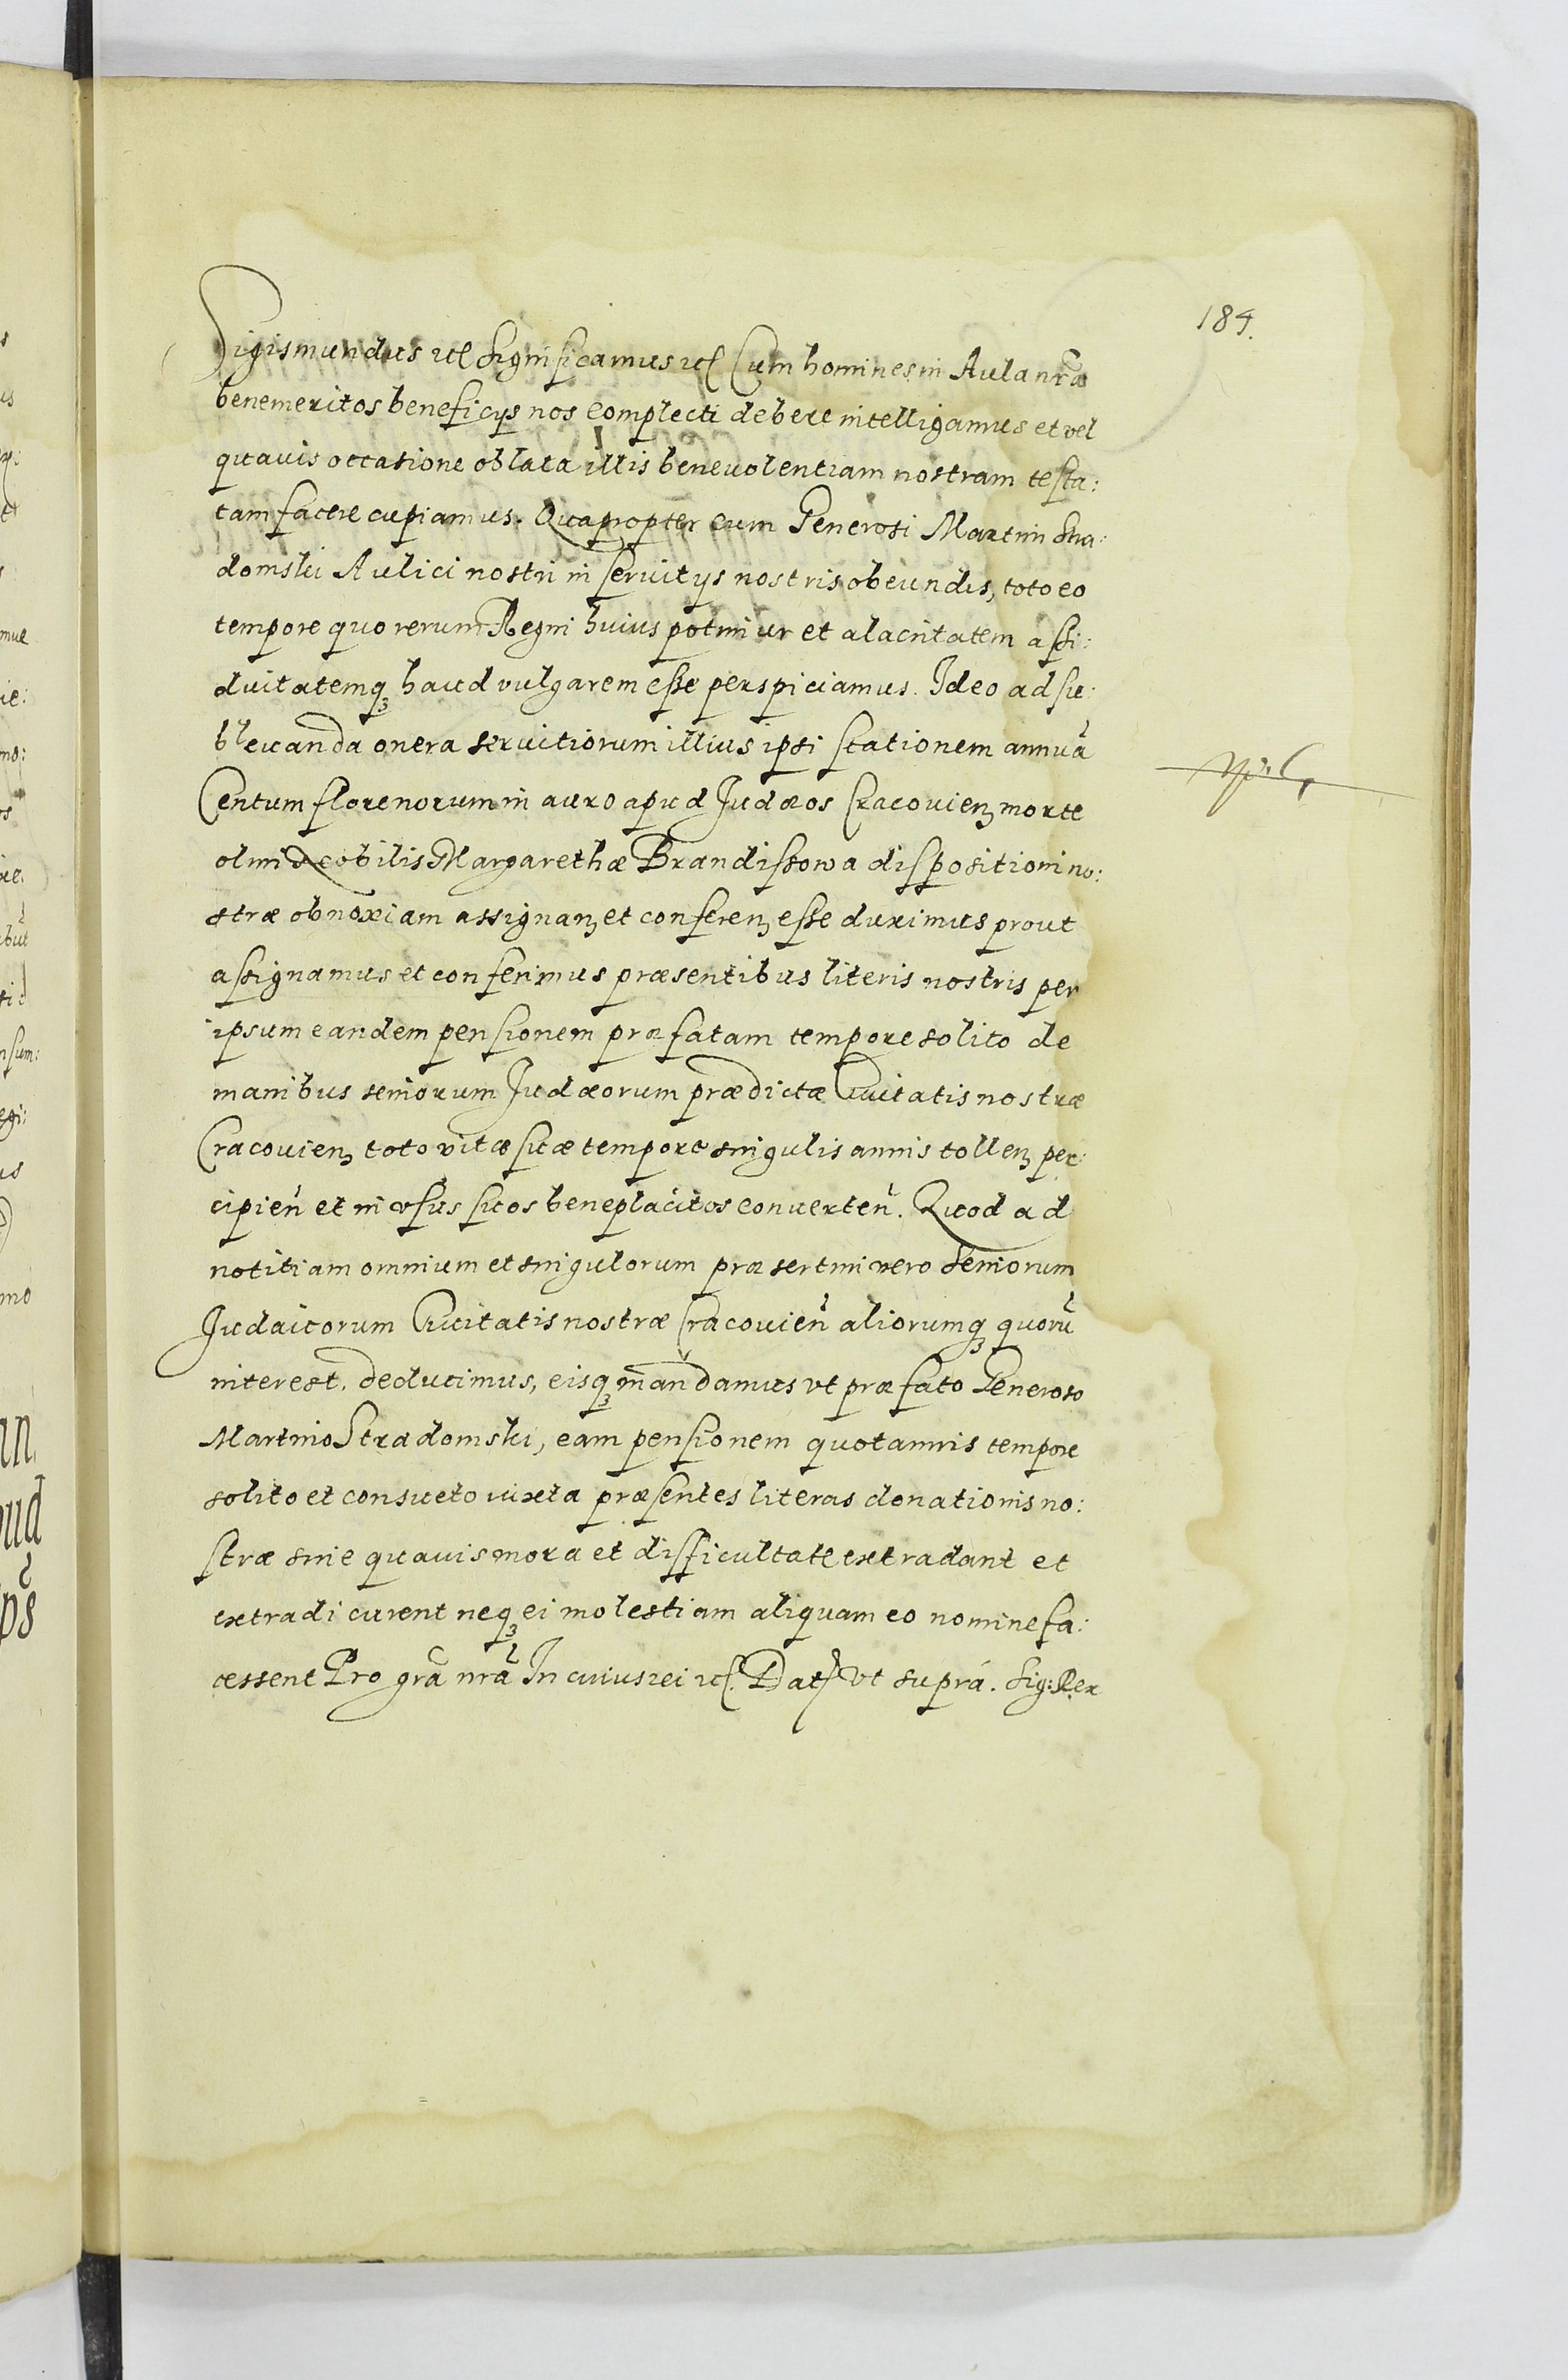 184.
Sigismundus etc Significamus etc Cum homines in Aula nrã
benemeritos beneficijs nos complecti debere intelligamus et vel
quauis occasione oblata illis beneuolentiam nostram testa:
tam facere cupiamus. Quapropter cum Generosi Martini Stra:
domski Aulici nostri in seruitijs nostris obeundis, toto eo
tempore quo rerum Regni huius potimur et alacritatem assi:
duitatemq3 haud vulgarem esse perspiciamus. Ideo ad su:
bleuanda onera seruitiorum illius ipsi stationem annuã
Centum florenorum in auro apud Judæos Cracouien3 morte
olim Nobilis Margarethæ Brandissowa dispositioni no:
stræ obnoxiam assignan3 et conferen3 esse duximus prout
assignamus et conferimus præsentibus literis nostris per
ipsum eandem pensionem præfatam tempore solito de
manibus seniorum Judæorum prædictæ Ciuitatis nostræ
Cracouien3 toto vitæ suæ tempore singulis annis tollen3 per:
cipieñ et in vsus suos beneplacitos conuerteñ. Quod ad
notitiam omnium et singulorum præsertim vero Seniorum
Judaicorum Ciuitatis nostræ Cracouieñ aliorumq3 quorũ
interest. deducimus, eisq3 mandamus vt præfato Generoso
Martino Stradomski, eam pensionem quotannis tempore
solito et consueto iuxta præsentes literas donationis no:
stræ sine quauis mora et difficultate extradant et
extradi curent neq3 ei molestiam aliquam eo nomine fa:
cessent Pro grã nrã In cuius rei etc. Dat vt suprá. Sig: Rex